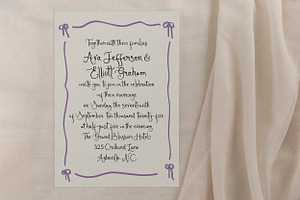 Together with their families
Ava Jefferson &
Elliott Graham
invite you to join in the celebration
of their marriage
on Sunday the seventeenth
of September two thousand twenty-five
at half-past five in the evening
The Grand Blossom Hotel
325 Orchard Lane
Asheville, NC